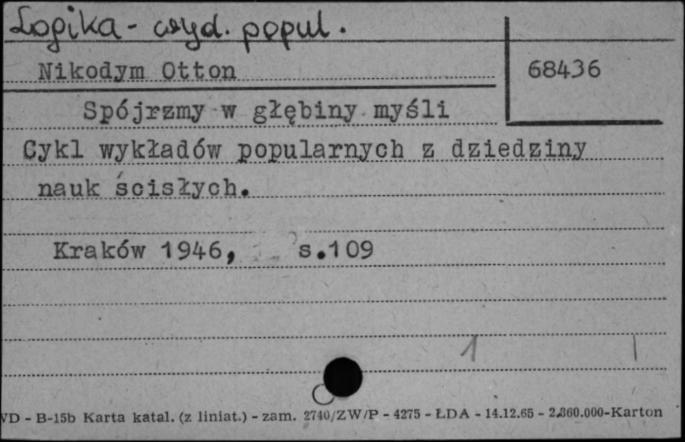 Logika - wyd. popul.
Nikodym Otton
68436
Spójrzmy w głębiny myśli
Cykl wykładów popularnych z dziedziny
nauk ścisłych.
Kraków 1946, s.109
1
VD - B-15b Karta katal. (z liniat.) - zam. 2740/ZW/P - 4275 - ŁDA - 14.12.65 - 2.860.000-Karton